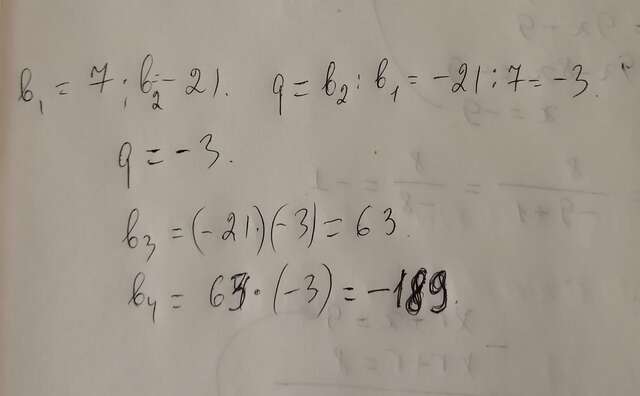 b₁ = 7; b₂ = -21. q = b₂ : b₁ = -21 : 7 = -3.
q = -3.
b₃ = (-21)·(-3) = 63.
b₄ = 63·(-3) = -189.